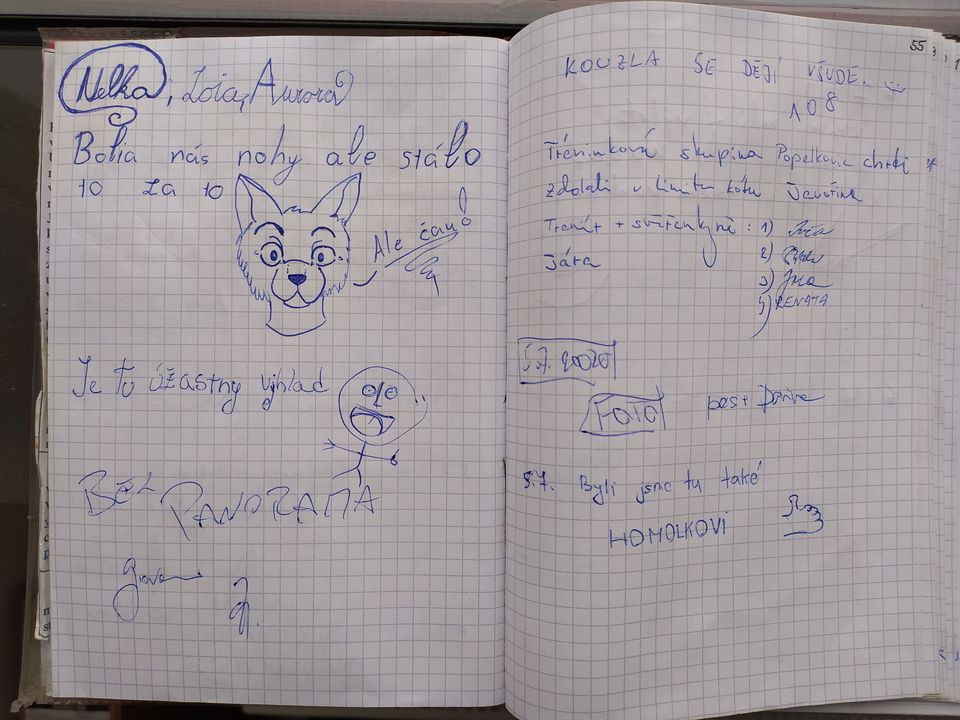 Nelka, Zoja, Aurora
Bolia nás nohy ale stálo
to za to
Ale čau!
Je tu úžastny vyhlad
BĚL
PANORAMA
55
KOUZLA SE DĚJÍ VŠUDE.
108
Tréninková skupina Popelkovic chrti
zdolali v limitu kótu Javořina
Trenér + svěřenkyně: 1)
Jára
2)
3)
4) RENATA
5.7. 2020
FOTO
5.7. Byli jsme tu také
HOMOLKOVI